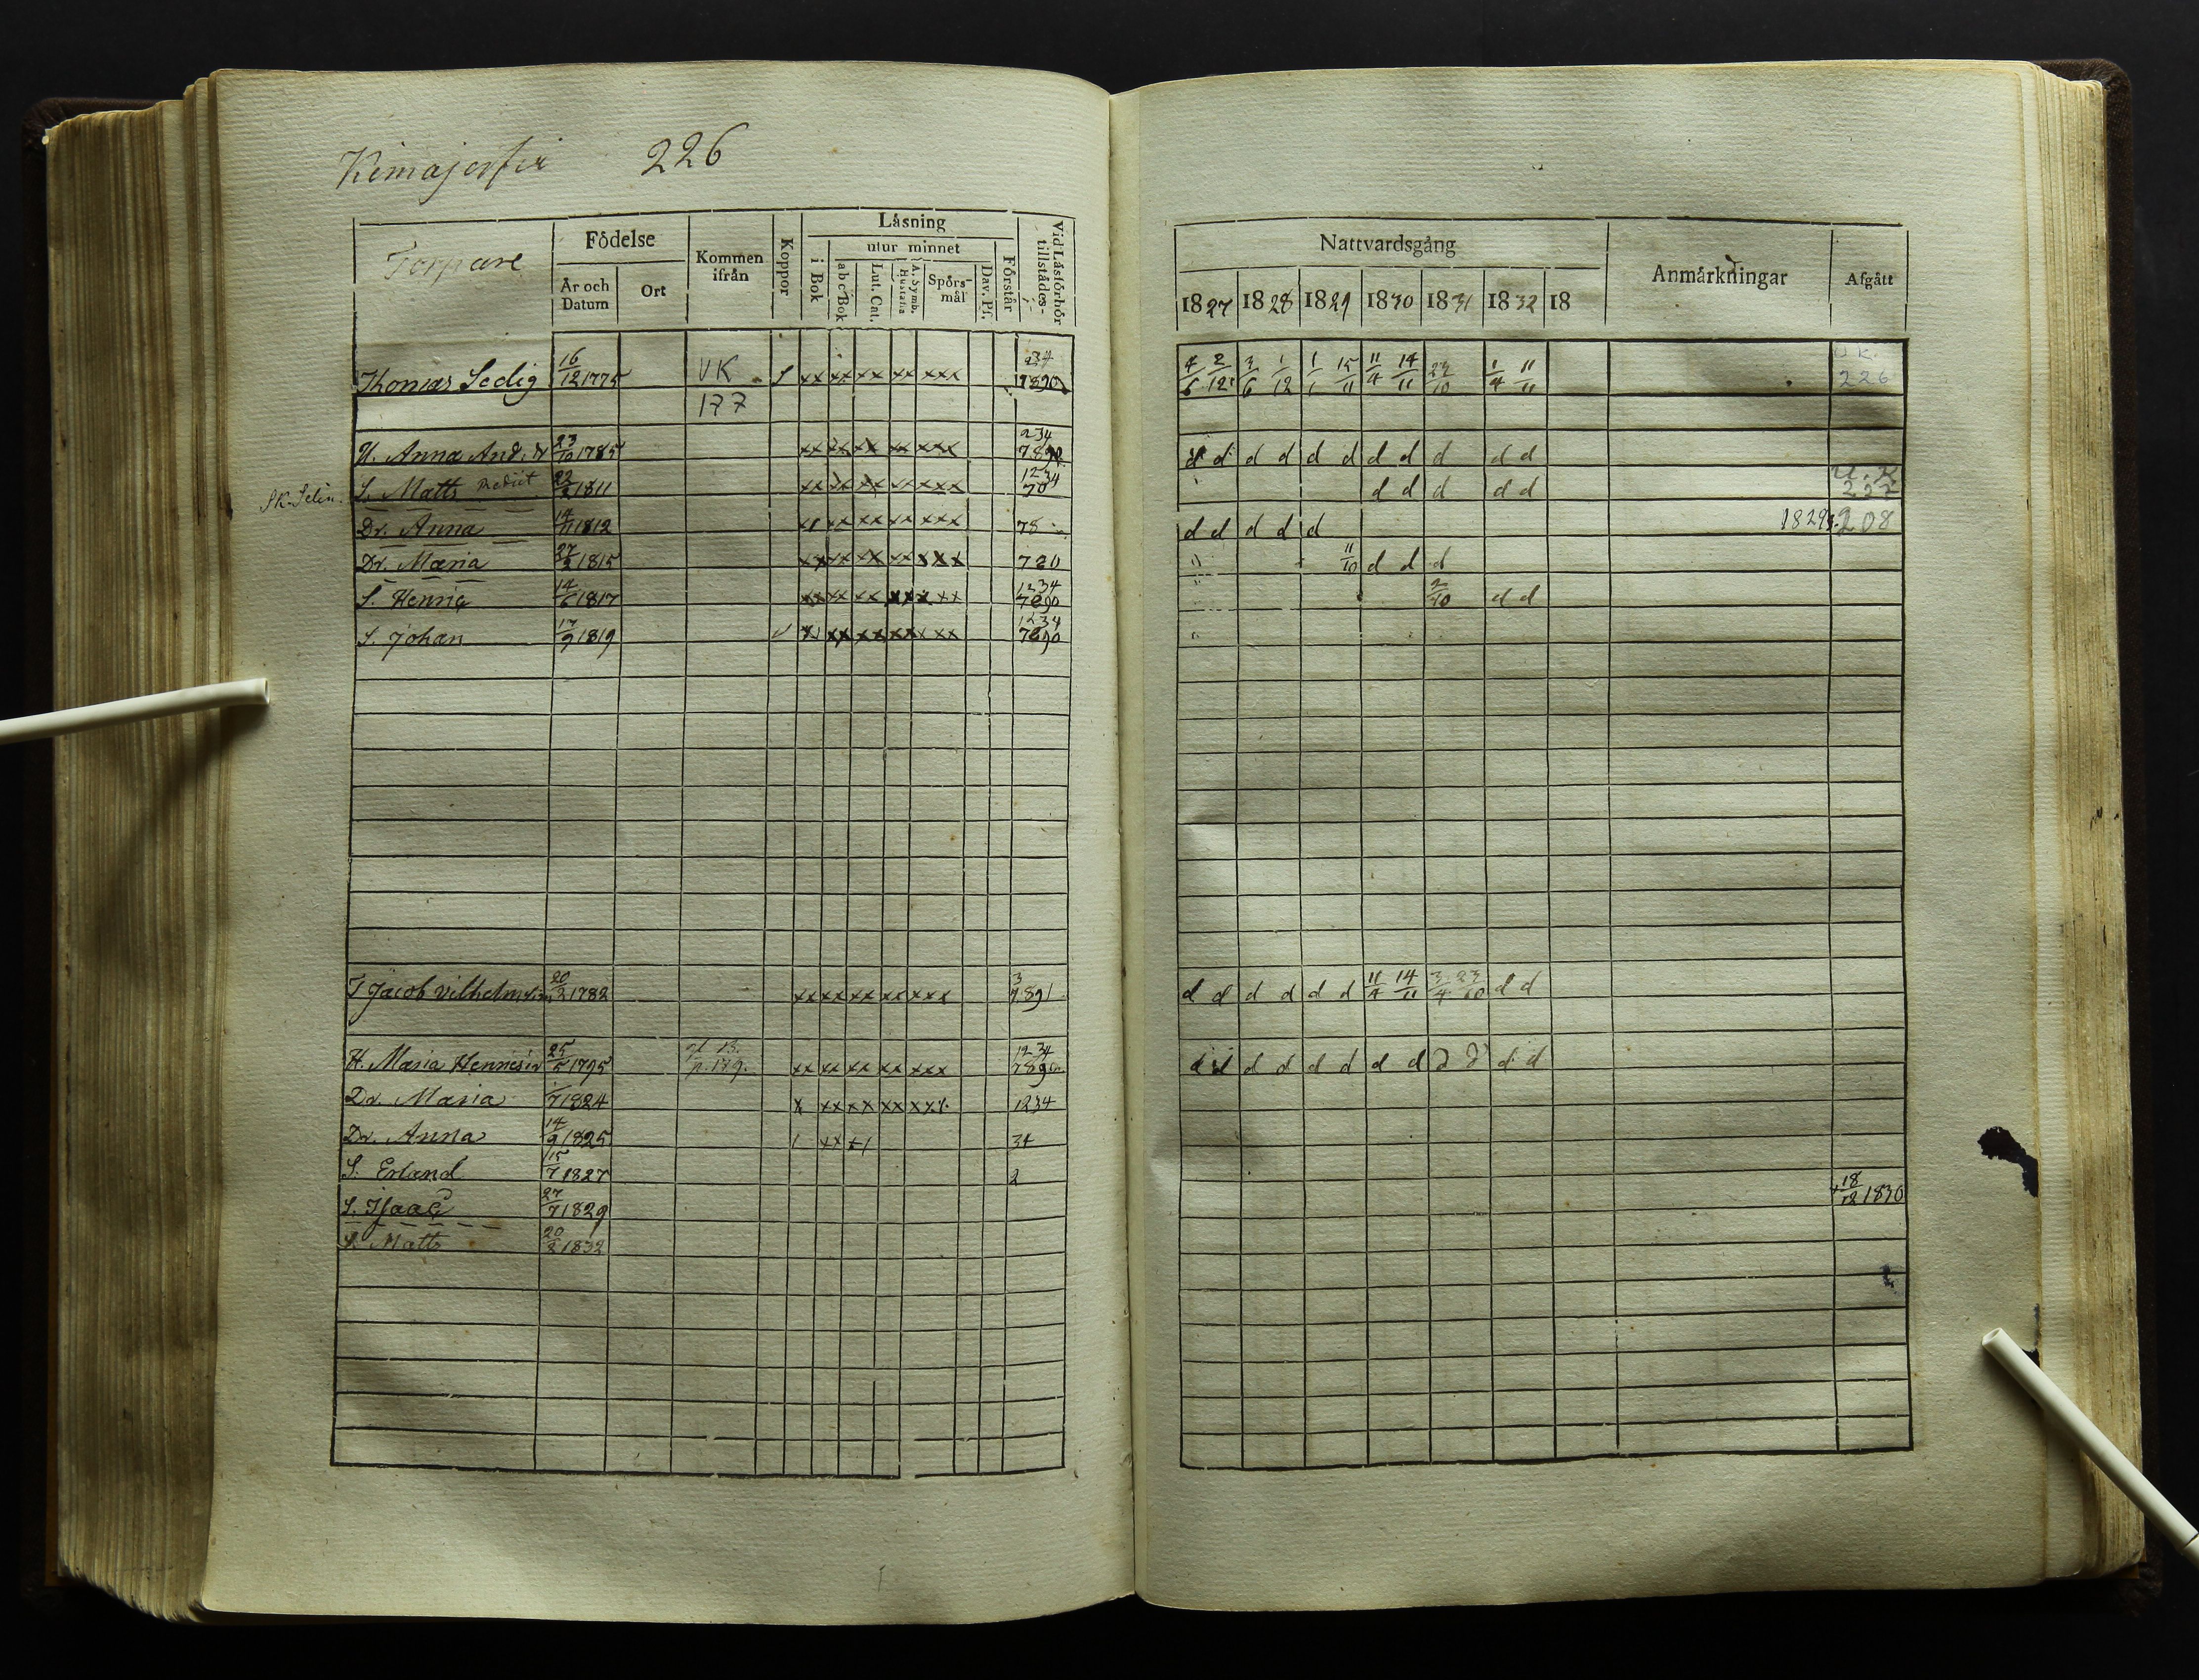 226
Torpare
Födelse
År och Datum
Ort
Kommen ifrån
Koppor
Läsning
i Bok
utur minnet
abc Bok
Lut. Cat.
A. Symb. Hustafla
Spörsmål
Dav. Ps.
Förstår
Vid Läsförhör tillstädes
Nattvardsgång
1827 1828 1829 1830 1831 1832 18
Anmärkningar
Afgått
Thomas Sedig 16/12 1775 VK 177 xx xx xx xx xxx 234 7890 4/6 2/12 3/6 1/12 1/1 15/11 11/4 14/11 23/10 1/4 11/11 226
H. Anna And. dr 23/10 1785 xx xx xx xx xxx 234 d d d d d d d d d d d
S. Matts 22/2 1811 xx xx xx xx xxx 1234 70 d d d d d 227
Dr. Anna 14/11 1812 xx xx xx xxx 78 d d d d d 1829 208
Dr. Maria 27/2 1815 xx xx xx xx xxx 780 11/10 d d d
S. Henric 14/6 1817 xx xx xx xx xxx 1234 7890 2/10 d d
S. Johan 17/9 1819 xx xx xx xxx 1234 7890
T Jacob Vilhelmsson 20/2 1782 xx xx xx xx xxx 3 7891 d d d d d d 11/4 14/11 3/4 23/10 d d
H. Maria Henricsdr 25/5 1795 p. 179. xx xx xx xx xxx 1234 789 d d d d d d d d d d d d
Dr. Maria 7 1824 x xx xx xx xxx 1234
Dr. Anna 14/9 1825 / xx x/ 34
S. Erland 15/7 1827 2
S. Isaac 27/7 1829 † 18/12 1830
S. Matts 20/2 1832